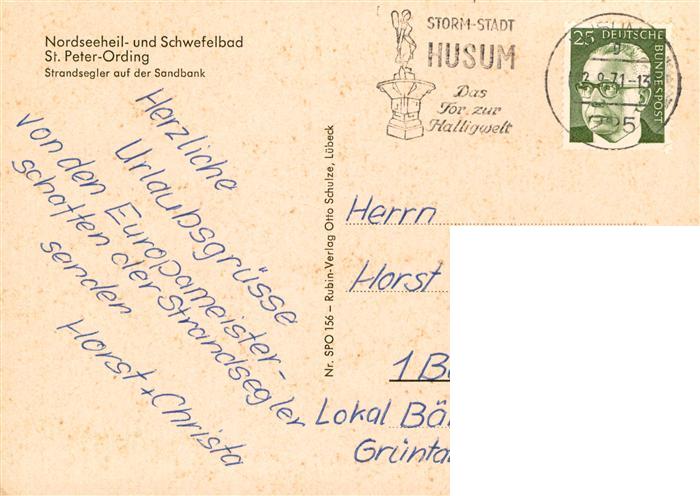 Nordseeheil- und Schwefelbad
St. Peter-Ording
Strandsegler auf der Sandbank
STORM-STADT
HUSUM
Das
Tor zur
Halligwelt
25 DEUTSCHE
BUNDESPOST
2.9.71-13
Herzliche
Urlaubsgrüsse
von den Europameister-
schaften der Strandsegler
senden
Horst + Christa
Nr. SPO 156 – Rubin-Verlag Otto Schulze, Lübeck
Herrn
Horst
1
Lokal